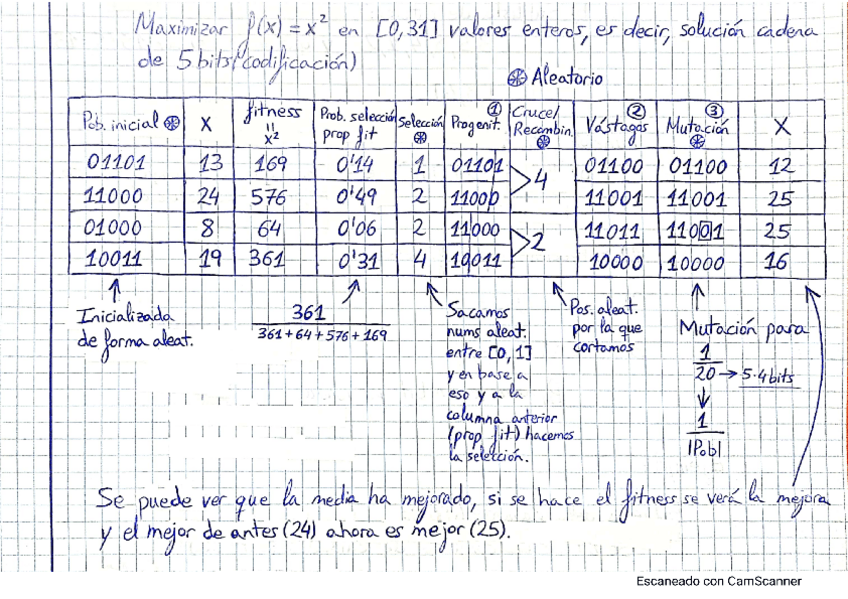 Maximizar f(x) = x² en [0,31] valores enteros, es decir, solución cadena
de 5 bits (codificación)
⊛ Aleatorio
Pob. inicial ⊛ | X | fitness = x² | Prob. selección prop fit | Selección ⊛ | ① Progenit. | Cruce/ Recombin. ⊛ | ② Vástagos | ③ Mutación ⊛ | X
01101 | 13 | 169 | 0'14 | 1 | 01101 | >4 | 01100 | 01100 | 12
11000 | 24 | 576 | 0'49 | 2 | 11000 | 11001 | 11001 | 25
01000 | 8 | 64 | 0'06 | 2 | 11000 | >2 | 11011 | 11001 | 25
10011 | 19 | 361 | 0'31 | 4 | 10011 | 10000 | 10000 | 16
Inicializada
de forma aleat.
361
361+64+576+169
Sacamos
nums aleat.
entre [0,1]
y en base a
eso y a la
columna anterior
(prop fit) hacemos
la selección.
Pos. aleat.
por la que
cortamos
Mutación para
1
20 → 5·4 bits
1
|Pob|
Se puede ver que la media ha mejorado, si se hace el fitness se verá la mejora
y el mejor de antes (24) ahora es mejor (25).
Escaneado con CamScanner